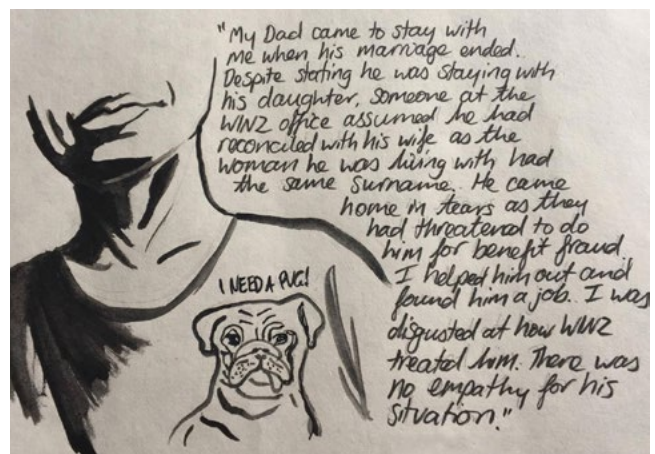 "My Dad came to stay with
me when his marriage ended.
Despite stating he was staying with
his daughter, someone at the
WINZ office assumed he had
reconciled with his wife as the
woman he was living with had
the same surname. He came
home in tears as they
had threatened to do
him for benefit fraud.
I helped him out and
found him a job. I was
disgusted at how WINZ
treated him. There was
no empathy for his
situation."
I NEED A PUG!